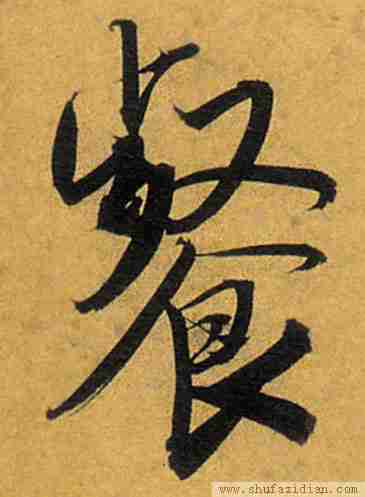 餐
www.shufazidian.com